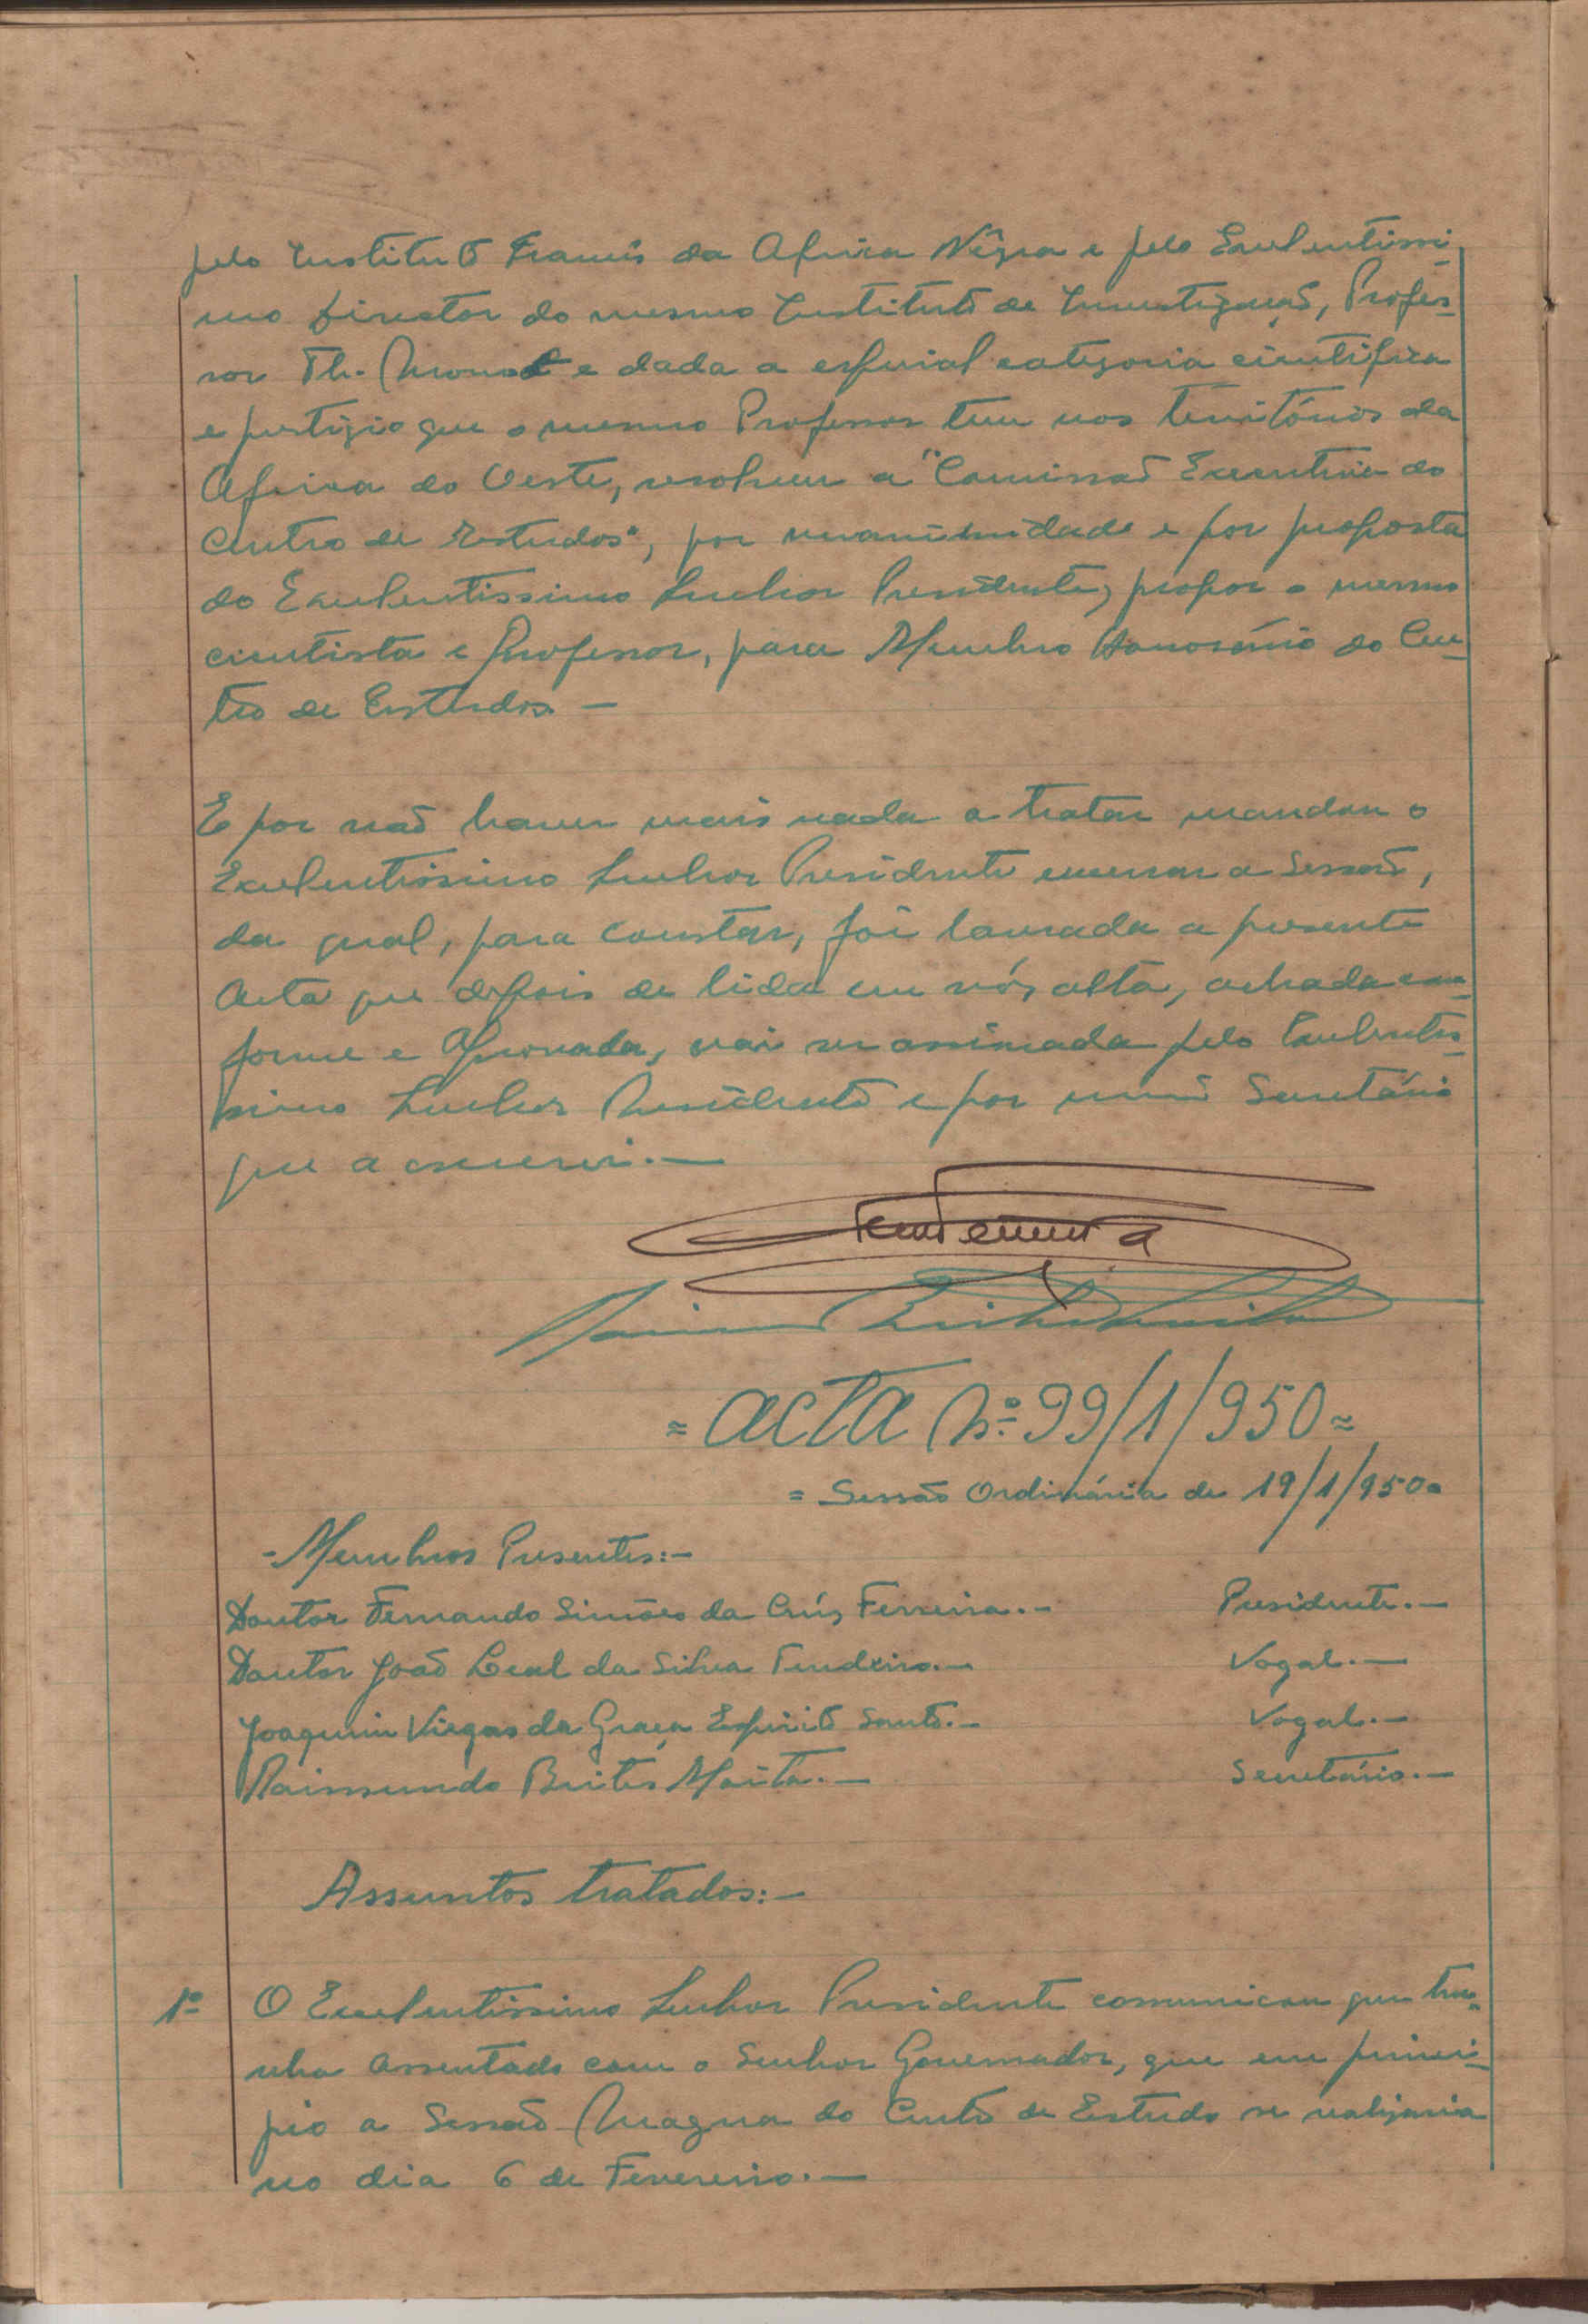 pelo Instituto Francês da Africa Négra e pelo Excelentissi-
mo Director do mesmo Instituto de Investigação, Profes-
sor Th. Monod e dada a especial categoria cientifica
e prestigio que o mesmo Professor tem nos territórios da
Africa do Oeste, resolveu a "Comissão Executiva do
Centro de Estudos", por unanimidade e por proposta
do Excelentissimo Senhor Presidente, propor o mesmo
cientista e Professor, para Membro Honorário do Cen-
tro de Estudos —
E por não haver mais nada a tratar mandou o
Excelentissimo Senhor Presidente encerrar a Sessão,
da qual, para constar, foi lavrada a presente
Acta que depois de lida em vós alta, achada con-
forme e aprovada, vai ser assinada pelo Excelentis-
simo Senhor Presidente e por mim Secretário
que a escrevi.—
= Acta Nº 99/1/950 =
= Sessão Ordinária de 19/1/950=
- Membros Presentes:-
Doutor Fernando Simões da Crús Ferreira.- Presidente.—
Doutor João Leal da Silva Tendeiro.— Vogal.—
Joaquim Viegas da Graça Espirito Santo.— Vogal.—
Raimundo Brites Moita.— Secretário.—
Assuntos tratados:-
1º O Excelentissimo Senhor Presidente comunicou que ti-
nha assentado com o Senhor Governador, que em princi-
pio a Sessão Magna do Centro de Estudo se realizaria
no dia 6 de Fevereiro.—